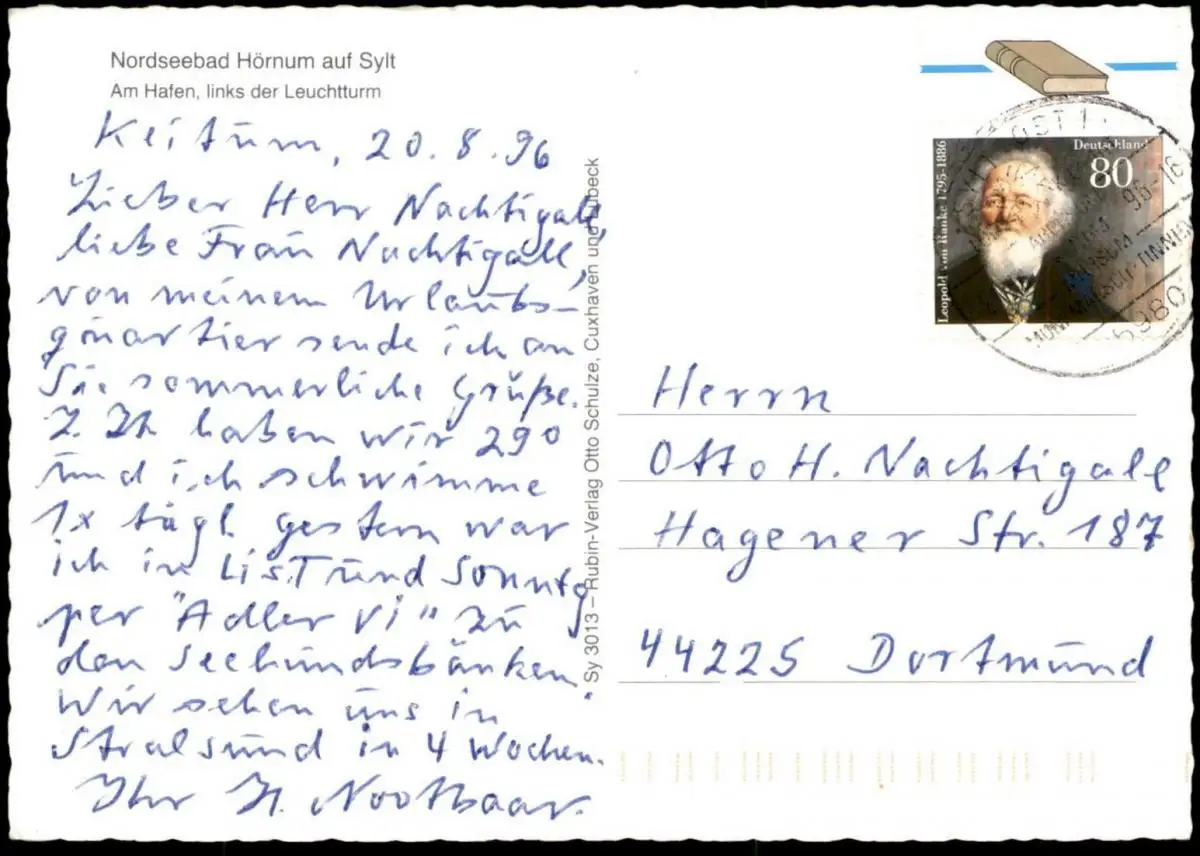 Nordseebad Hörnum auf Sylt
Am Hafen, links der Leuchtturm
Keitum, 20.8.96
Lieber Herr Nachtigall,
liebe Frau Nachtigall,
von meinem Urlaubs-
quartier sende ich an
Sie sommerliche Grüße.
Z. Zt. haben wir 29°
und ich schwimme
1x tägl. gestern war
ich in List und Sonntg
per "Adler VI" zu
den Seehundsbänken.
Wir sehen uns in
Stralsund in 4 Wochen.
Ihr H. Nootbaar.
Sy 3013 – Rubin-Verlag Otto Schulze, Cuxhaven und Lübeck
Deutschland
80
Leopold von Ranke 1795-1886
96-18
HUSUM
5980
Herrn
Otto H. Nachtigall
Hagener Str. 187
44225 Dortmund